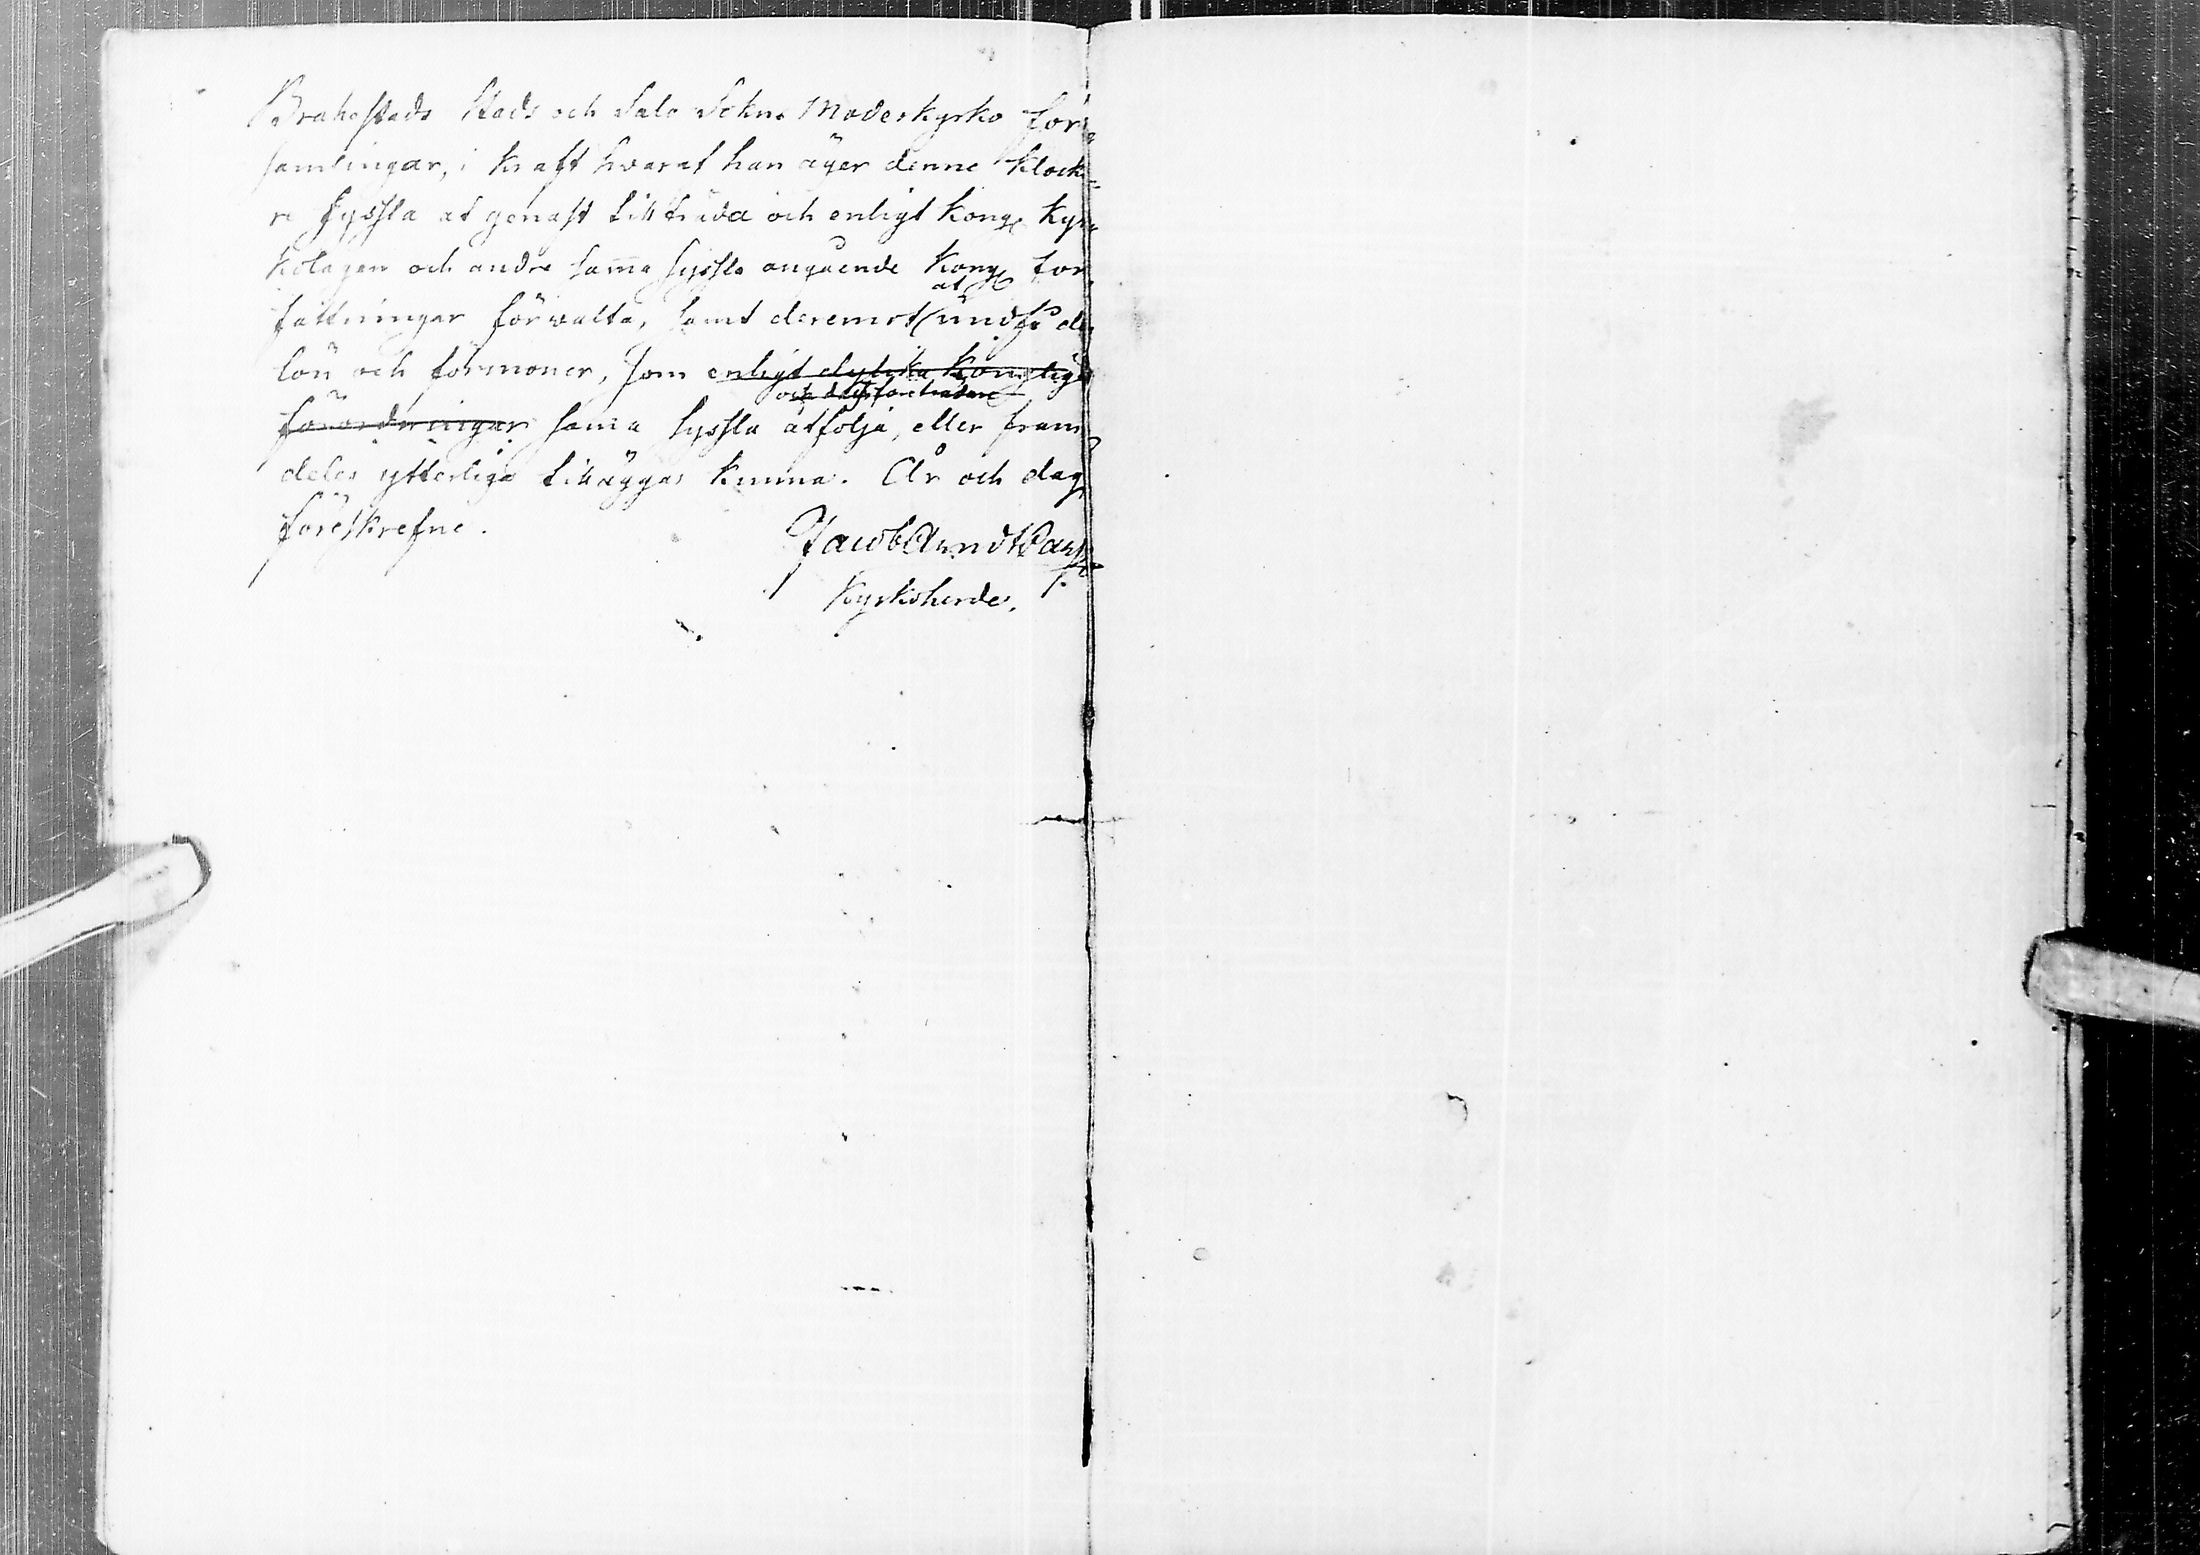 Brahestads Stads och Salo Sokns Moderkyrko för=
samlingar, i kraft hwaraf han äger denne klocka=
re syssla at genast tillträda och enligt kongl kyr=
kolagen och andre samma syssla angående Kongl för=
at
fattningar förwalta, samt deremot undfå de
lön och förmoner, som enligt dylika Kongliga
och dess företrädare
förordningar samma syssla åtfölja, eller fram
deles ytterliga tilläggas kunna. År och dag
föreskrefne.
Jacob
Kyrkoherde.